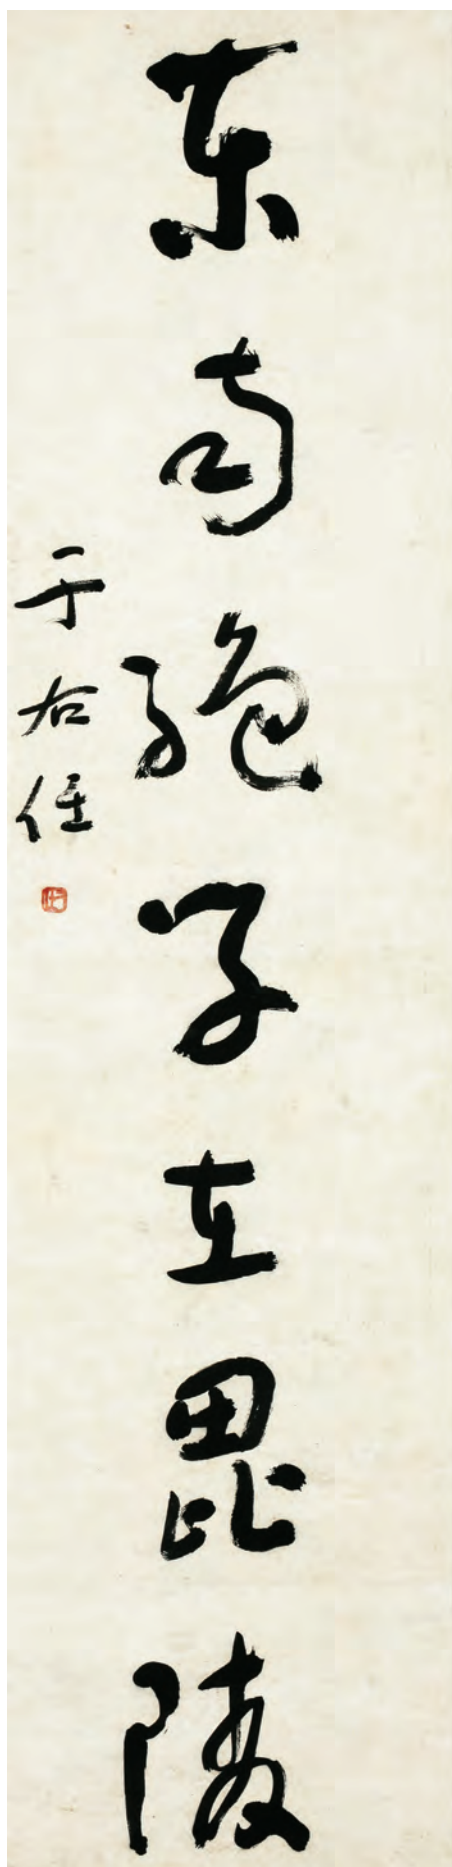 東南絕學在毘陵
于右任